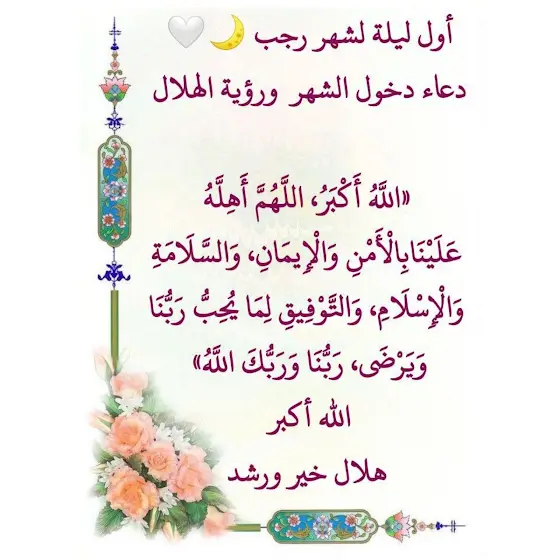 أول ليلة لشهر رجب 🌙🤍
دعاء دخول الشهر ورؤية الهلال
«اللَّهُ أَكْبَرُ، اللَّهُمَّ أَهِلَّهُ
عَلَيْنَا بِالْأَمْنِ وَالْإِيمَانِ، وَالسَّلَامَةِ
وَالْإِسْلَامِ، وَالتَّوْفِيقِ لِمَا يُحِبُّ رَبُّنَا
وَيَرْضَى، رَبُّنَا وَرَبُّكَ اللَّهُ»
الله أكبر
هلال خير ورشد